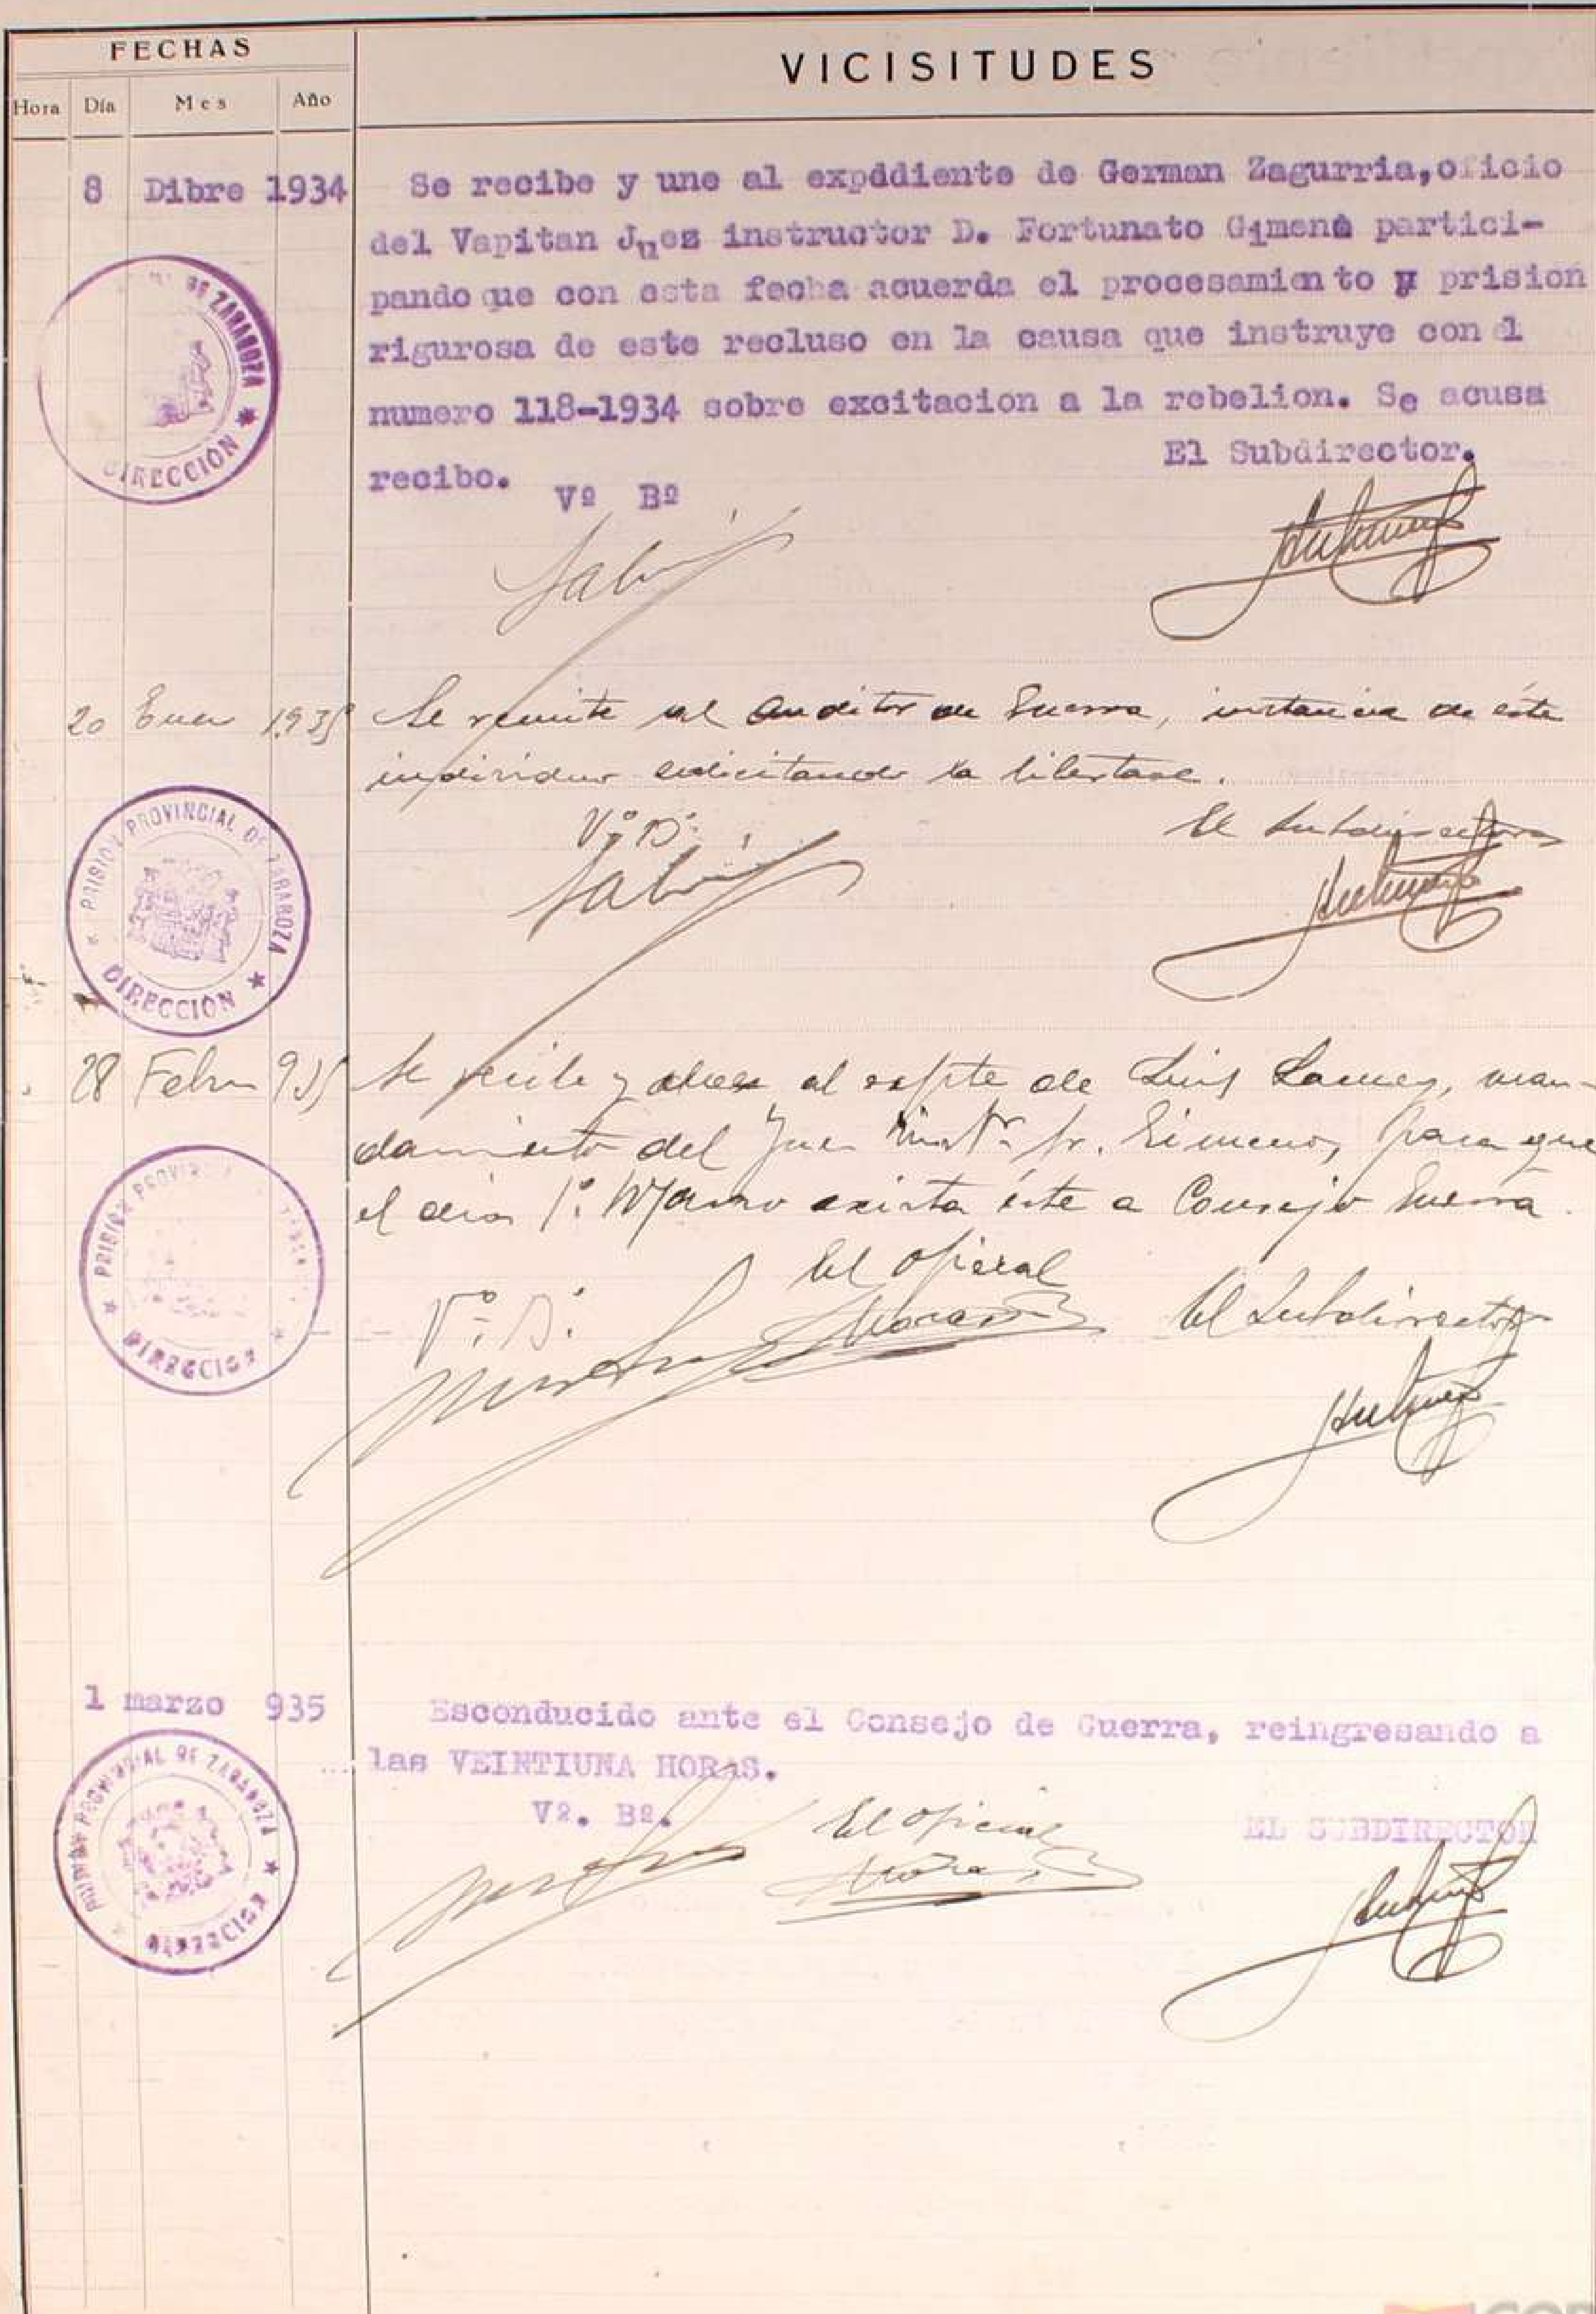 FECHAS
VICISITUDES
Hora Día Mes Año
8 Dibre 1934 Se recibe y une al expddiente de German Zagurria, oficio
del Vapitan Juez instructor D. Fortunato Gimene partici-
pando que con esta fecha acuerda el procesamiento y prision
rigurosa de este recluso en la causa que instruye con el
numero 118-1934 sobre excitacion a la rebelion. Se acusa
recibo. Vº Bº El Subdirector.
DE ZARAGOZA
DIRECCIÓN
20 Enero 1935 Se remite al Auditor de Guerra, instancia de éste
individuo solicitando la libertad.
Vº Bº El Subdirector
PRISION PROVINCIAL DE ZARAGOZA
DIRECCIÓN
28 Febro 935 Se recibe y al expte de Luis man-
damiento del Juez Instr Sr. Gimeno, para que
el dia 1º Marzo asista éste a Consejo Guerra.
Vº Bº El Oficial El Subdirector
PRISION PROVI
DIRECCION
1 marzo 935 Esconducido ante el Consejo de Guerra, reingresando a
las VEINTIUNA HORAS.
Vº. Bº. El Oficial EL SUBDIRECTOR
PRISION PROVINCIAL DE ZARAGOZA
DIRECCION